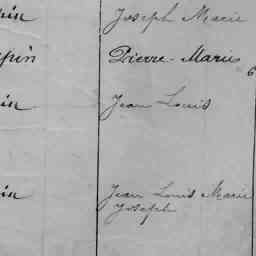 Joseph Marie
Pierre-Marie
6
Jean Louis
Jean Louis Marie
Joseph